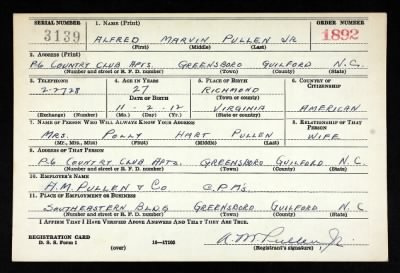 SERIAL NUMBER 1. NAME (Print) ORDER NUMBER
3139 ALFRED MARVIN PULLEN JR 1892
(First) (Middle) (Last)
2. ADDRESS (Print)
P-6 COUNTRY CLUB APTS. GREENSBORO GUILFORD N.C.
(Number and street or R. F. D. number) (Town) (County) (State)
3. TELEPHONE 4. AGE IN YEARS 5. PLACE OF BIRTH 6. COUNTRY OF CITIZENSHIP
2-2728 27 RICHMOND
DATE OF BIRTH (Town or county)
11 - 2 - 12 VIRGINIA AMERICAN
(Exchange) (Number) (Mo.) (Day) (Yr.) (State or country)
7. NAME OF PERSON WHO WILL ALWAYS KNOW YOUR ADDRESS 8. RELATIONSHIP OF THAT PERSON
MRS. POLLY HART PULLEN WIFE
(Mr., Mrs., Miss) (First) (Middle) (Last)
9. ADDRESS OF THAT PERSON
P-6 COUNTRY CLUB APTS. GREENSBORO GUILFORD N.C.
(Number and street or R. F. D. number) (Town) (County) (State)
10. EMPLOYER'S NAME
A.M. PULLEN & CO C.P.A's.
11. PLACE OF EMPLOYMENT OR BUSINESS
SOUTHEASTERN BLDG GREENSBORO GUILFORD N.C.
(Number and street or R. F. D. number) (Town) (County) (State)
I AFFIRM THAT I HAVE VERIFIED ABOVE ANSWERS AND THAT THEY ARE TRUE.
REGISTRATION CARD
D. S. S. Form 1 (over) 16—17105 A M Pullen Jr.
(Registrant's signature)